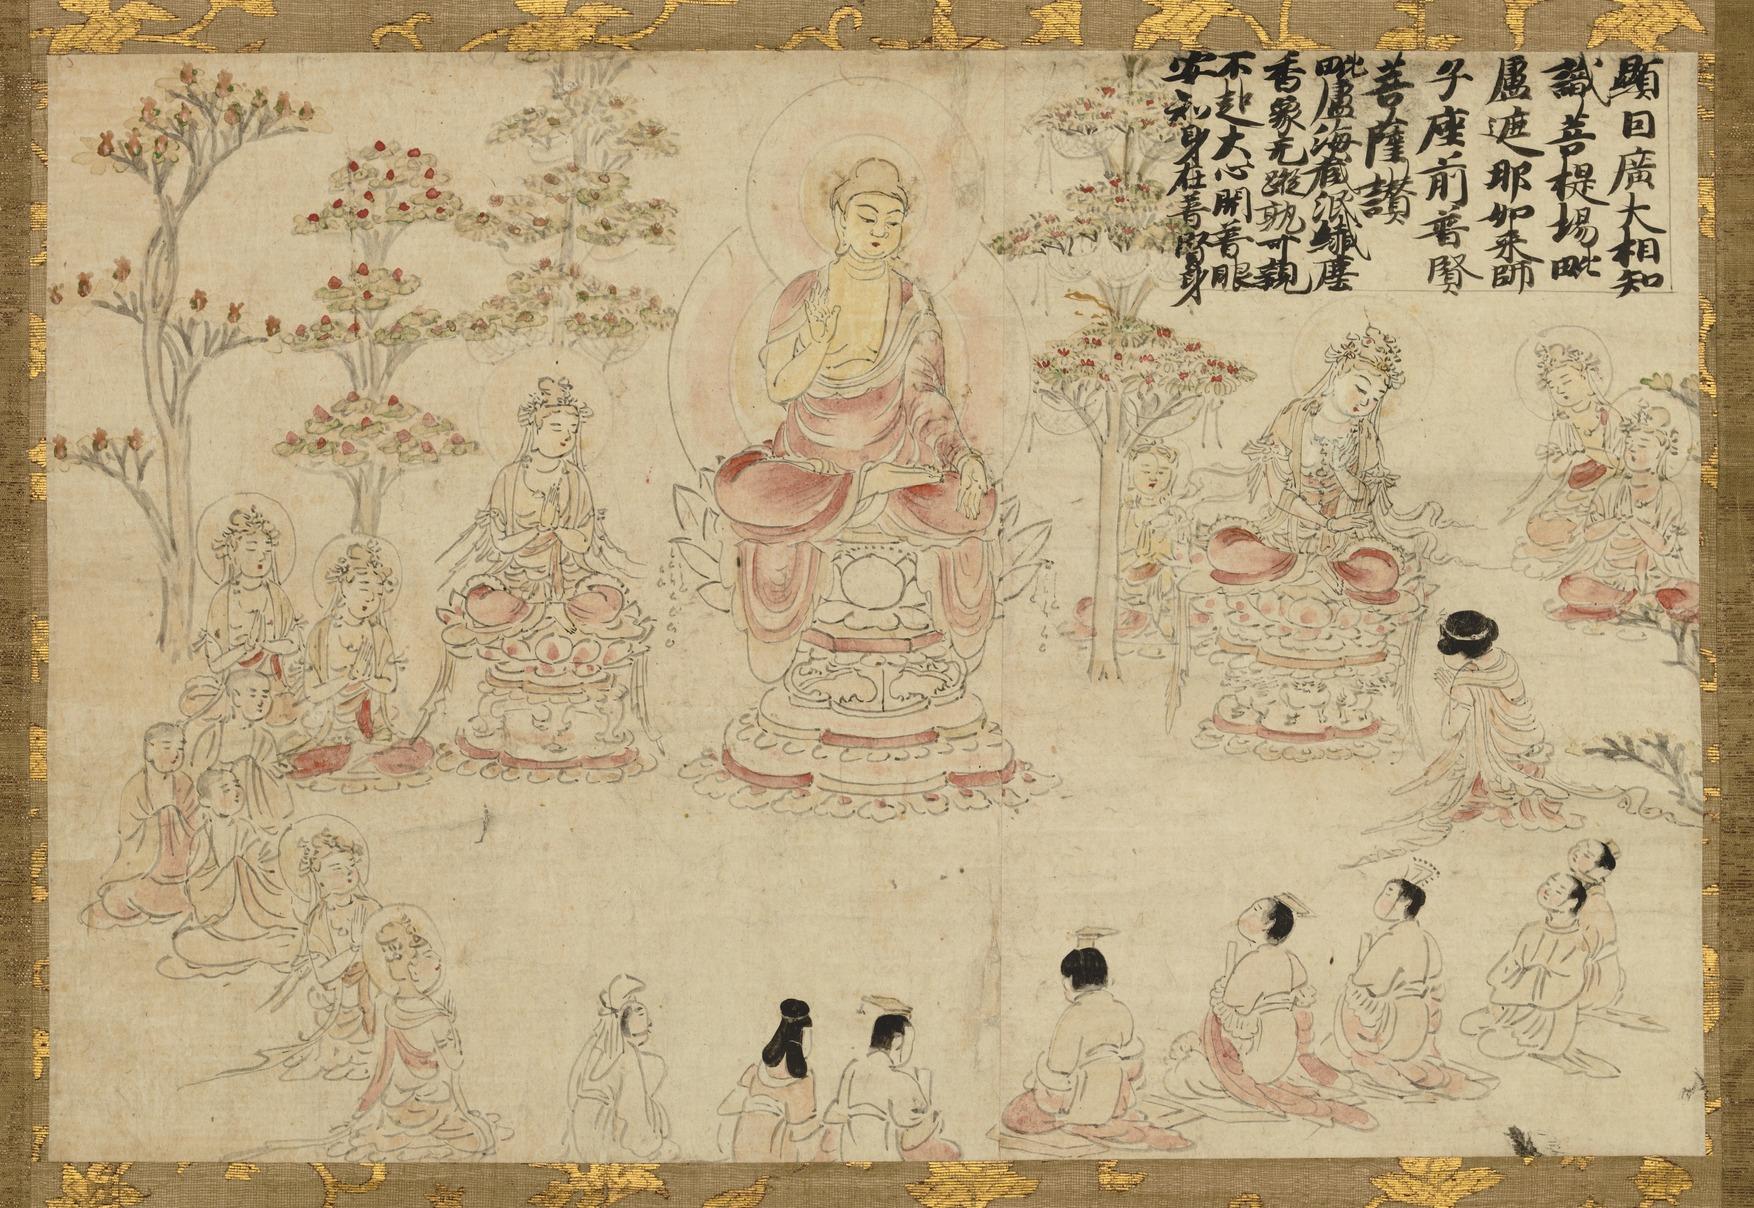 顯日廣大相知
識菩提場毗
盧遮那如来師
子座前普賢
菩薩讃
毗盧海藏泯纎塵
香象无蹤孰可親
不起大心開普眼
安知身在普賢身